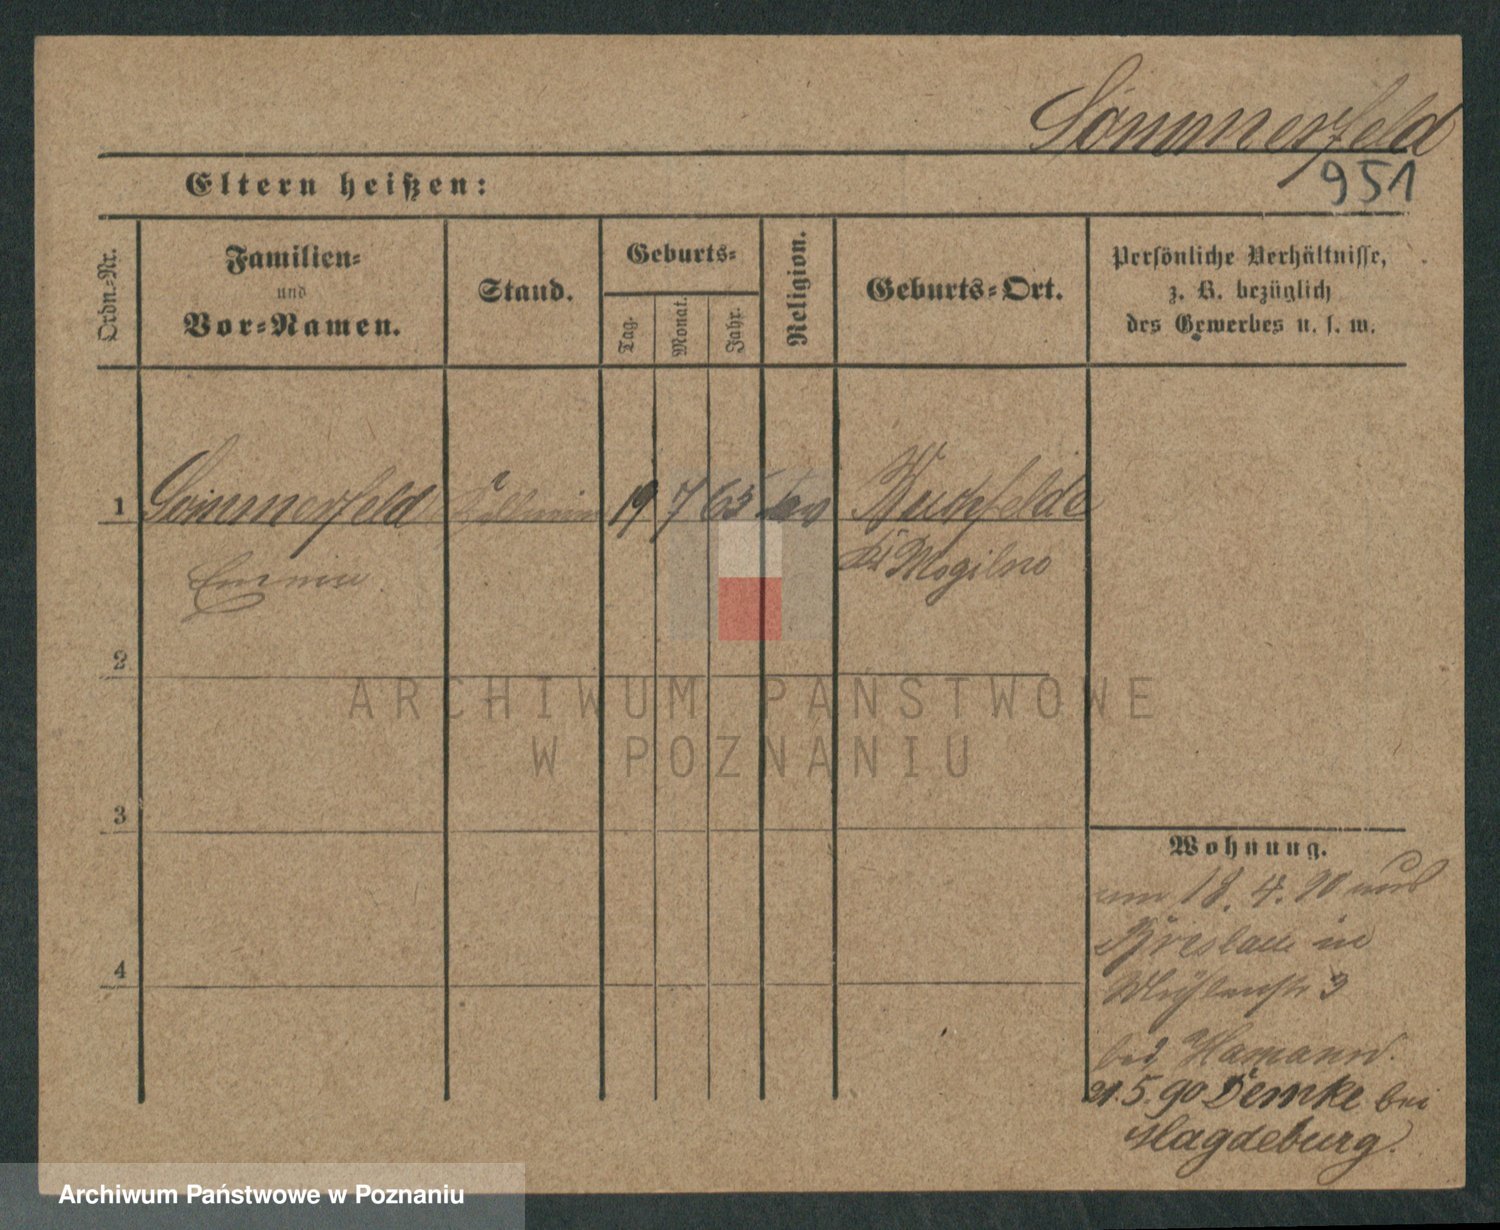 Sommerfeld
951
Eltern heißen:
Ordn.-Nr.
Familien-
und
Vor-Namen.
Stand.
Geburts-
Tag.
Monat.
Jahr.
Religion.
Geburts-Ort.
Persönliche Verhältnisse,
z. B. bezüglich
des Gewerbes u. s. w.
1 Sommerfeld 19 7 65 ev Buchfelde
Emma Kr Mogilno
2
ARCHIWUM PAŃSTWOWE
W POZNANIU
3
Wohnung.
am 18. 4. 90 aus
Breslau in
Mühlenstr 3
4
bei Hamann.
21. 5. 90 Demke bei
Magdeburg.
Archiwum Państwowe w Poznaniu